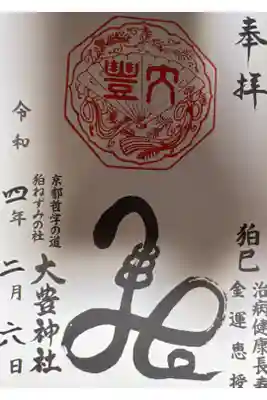 奉拝
狛巳
治病健康長寿
金運恵授
大豊
京都哲学の道
狛ねずみの社
大豊神社
令和四年二月六日